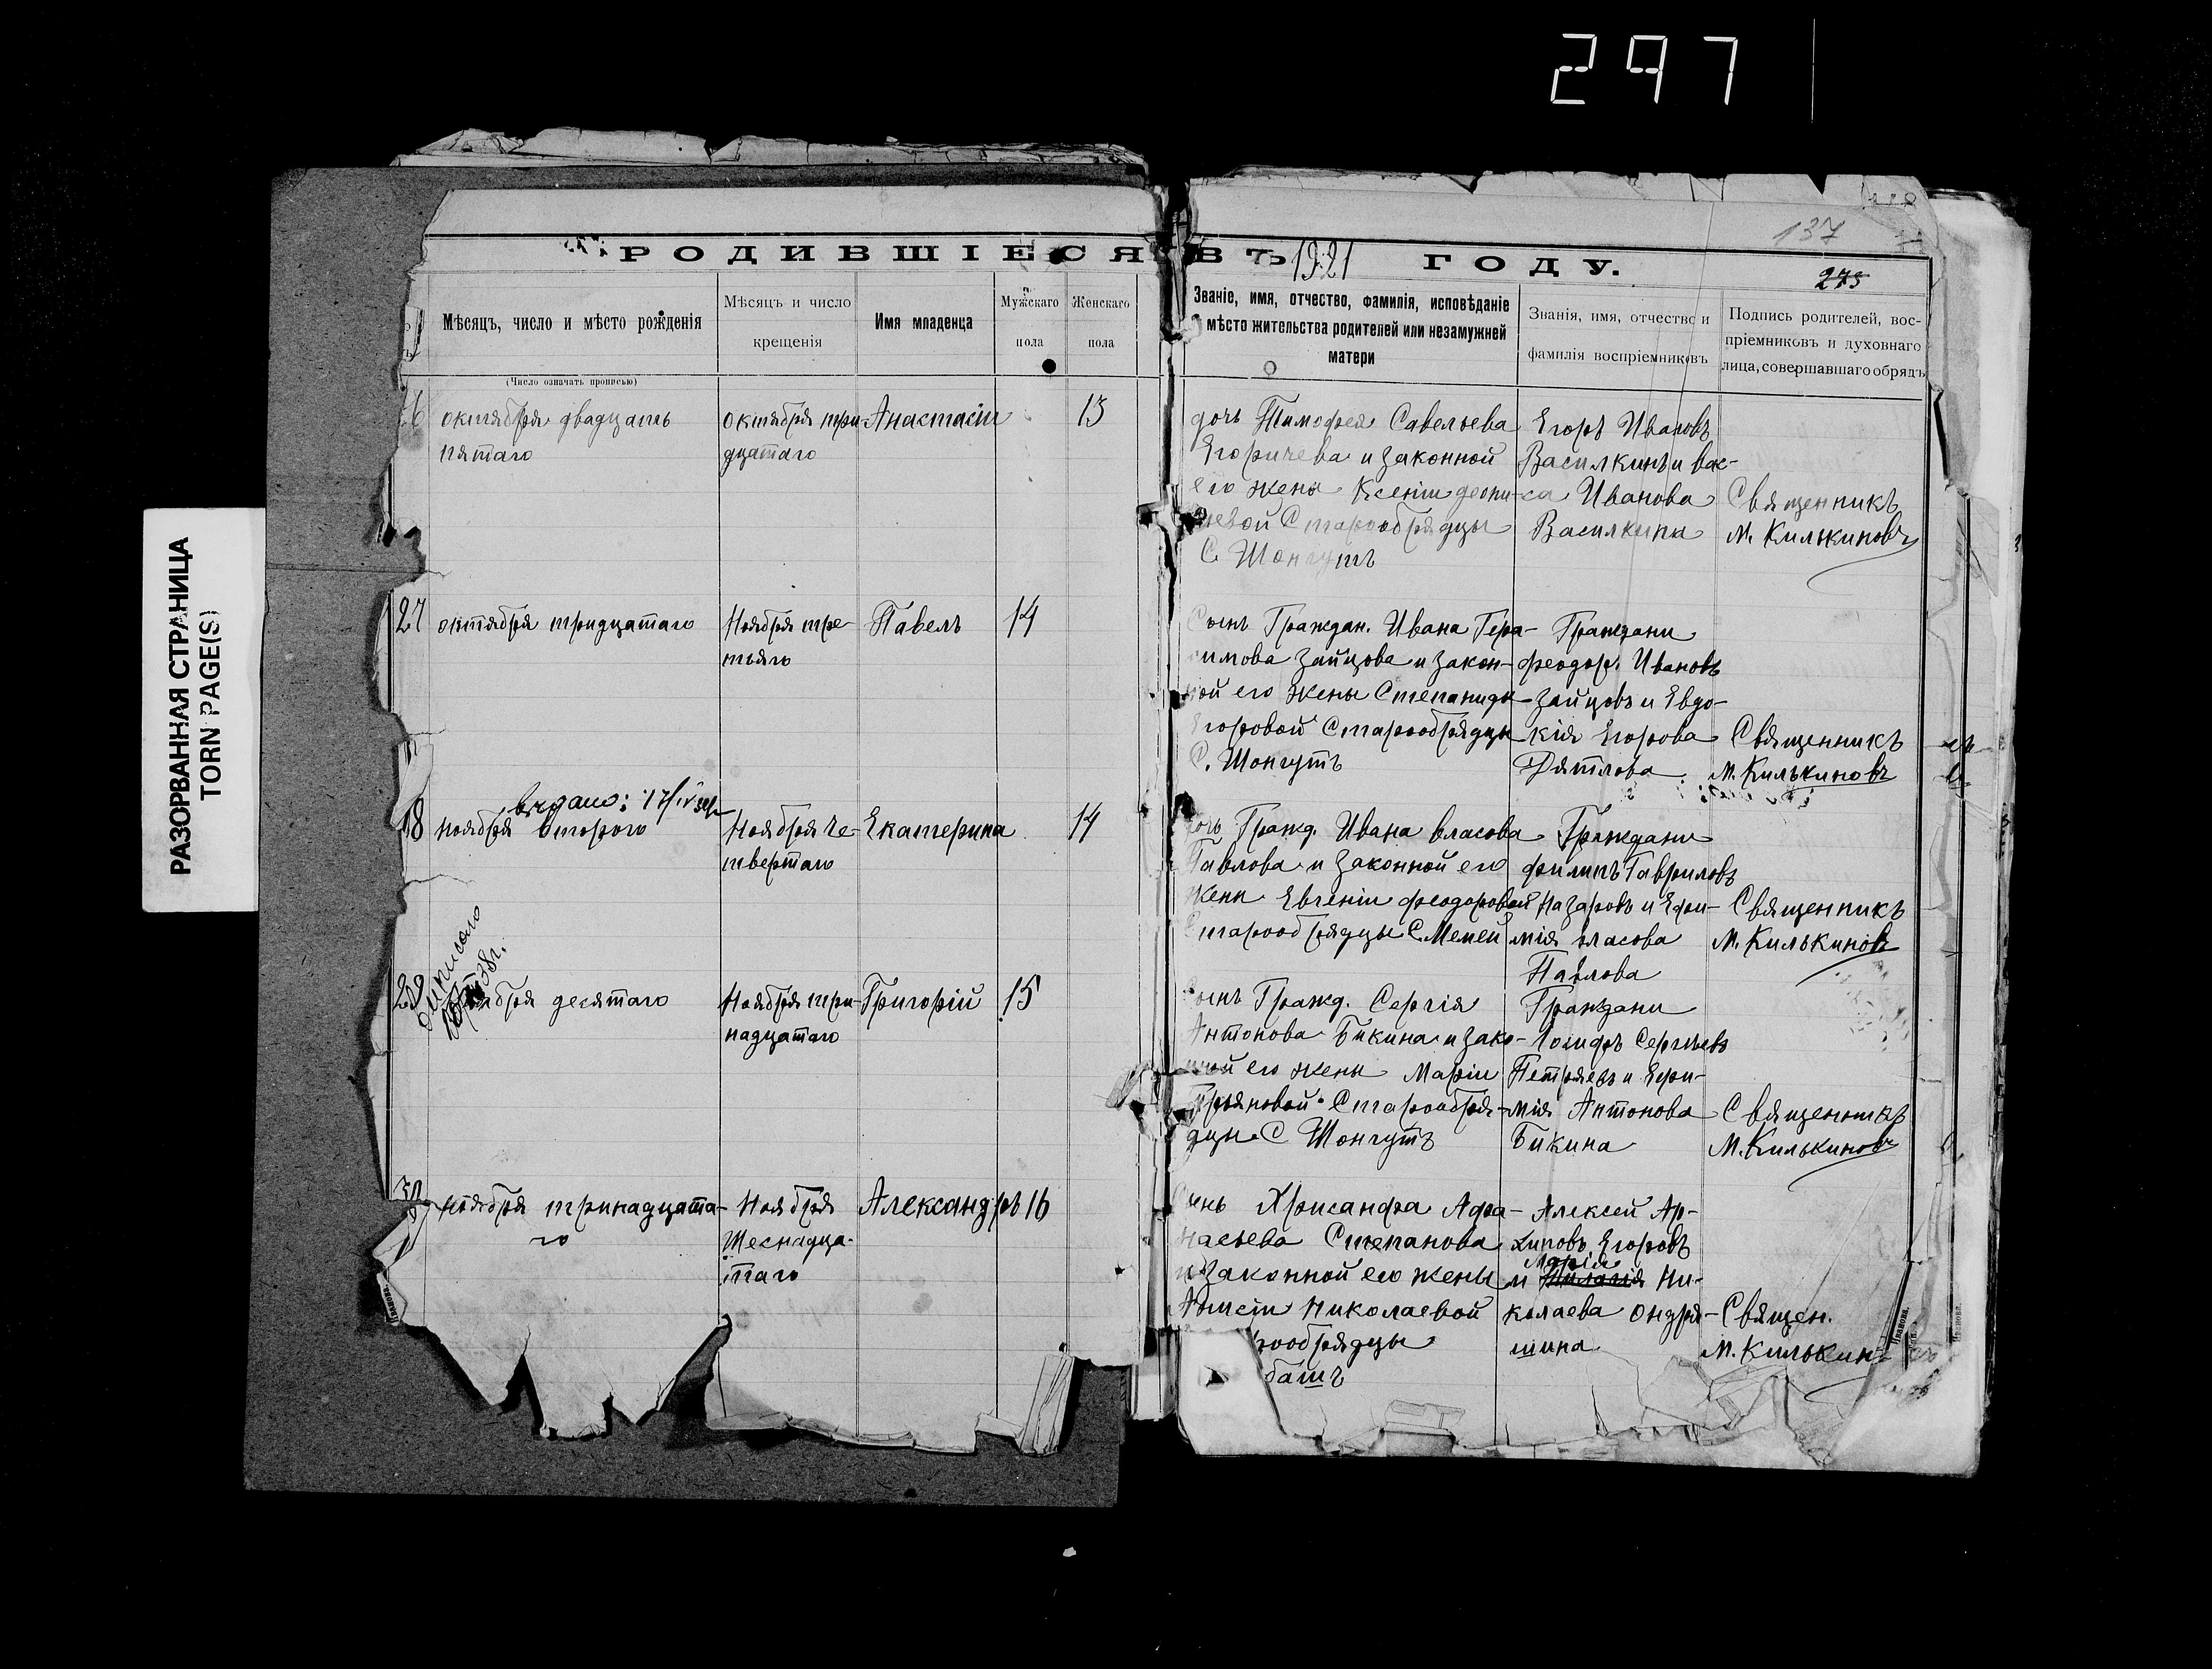 297
РАЗОРВАННАЯ СТРАНИЦА
TORN PAGE(S)
137
РОДИВШІЕСЯ ВЪ 1921 ГОДУ.
275
Мѣсяцъ, число и мѣсто рожденія
(Число означать прописью)
Мѣсяцъ и число
крещенія
Имя младенца
Мужскаго
пола
Женскаго
пола
Званіе, имя, отчество, фамилія, исповѣданіе
и мѣсто жительства родителей или незамужней
матери
Званія, имя, отчество и
фамилія воспріемниковъ
Подпись родителей, вос-
пріемниковъ и духовнаго
лица, совершавшаго обрядъ
26
октября двадцать
пятаго
октября три-
дцатаго
Анастасіи
13
дочь Тимофея Савельева
Егоричева и законной
его жены Ксеніи
Старообрядцы
С. Шонгутъ
Егоръ Ивановъ
Василкинъ и Вас-
са Иванова
Василкина
Священникъ
М. Килькиновъ
27
октября тридцатаго
Ноября тре-
тьяго
Павелъ
14
Сынъ Граждан. Ивана Гера-
симова Зайцова и закон-
ной его жены Степаниды
Егоровой Старообрядцы
С. Шонгутъ
Граждани
Феодор. Ивановъ
Зайцовъ и Евдо-
кія Егорова
Дятлова
Священникъ
М. Килькиновъ
28
ноября второго
Ноября че-
твертаго
Екатерина
14
дочь Гражд. Ивана Власова
Павлова и законной его
жены Евгеніи Феодоровой
Старообрядцы С.
Граждани
Филипъ Гавриловъ
Назаровъ и Ефи-
мія Власова
Павлова
Священникъ
М. Килькиновъ
29
ноября десятаго
Ноября три-
надцатаго
Григорій
15
Сынъ Гражд. Сергія
Антонова Бикина и зако-
нной его жены Маріи
Старообря-
дцы С Шонгутъ
Граждани
Іосифъ Сергѣевъ
Петряевъ и Ефи-
мія Антонова
Бикина
Священникъ
М. Килькиновъ
30
ноября тринадцата-
го
Ноября
Шеснадца-
таго
Александръ
16
Сынъ Хрисанфа Афа-
насьева Степанова
и законной его жены
Анисіи Николаевой
рообрядцы
башъ
Алексѣй Ар-
хиповъ Егоровъ
и Марія Ни-
колаева Ондря-
шина
Священ.
М. Килькин